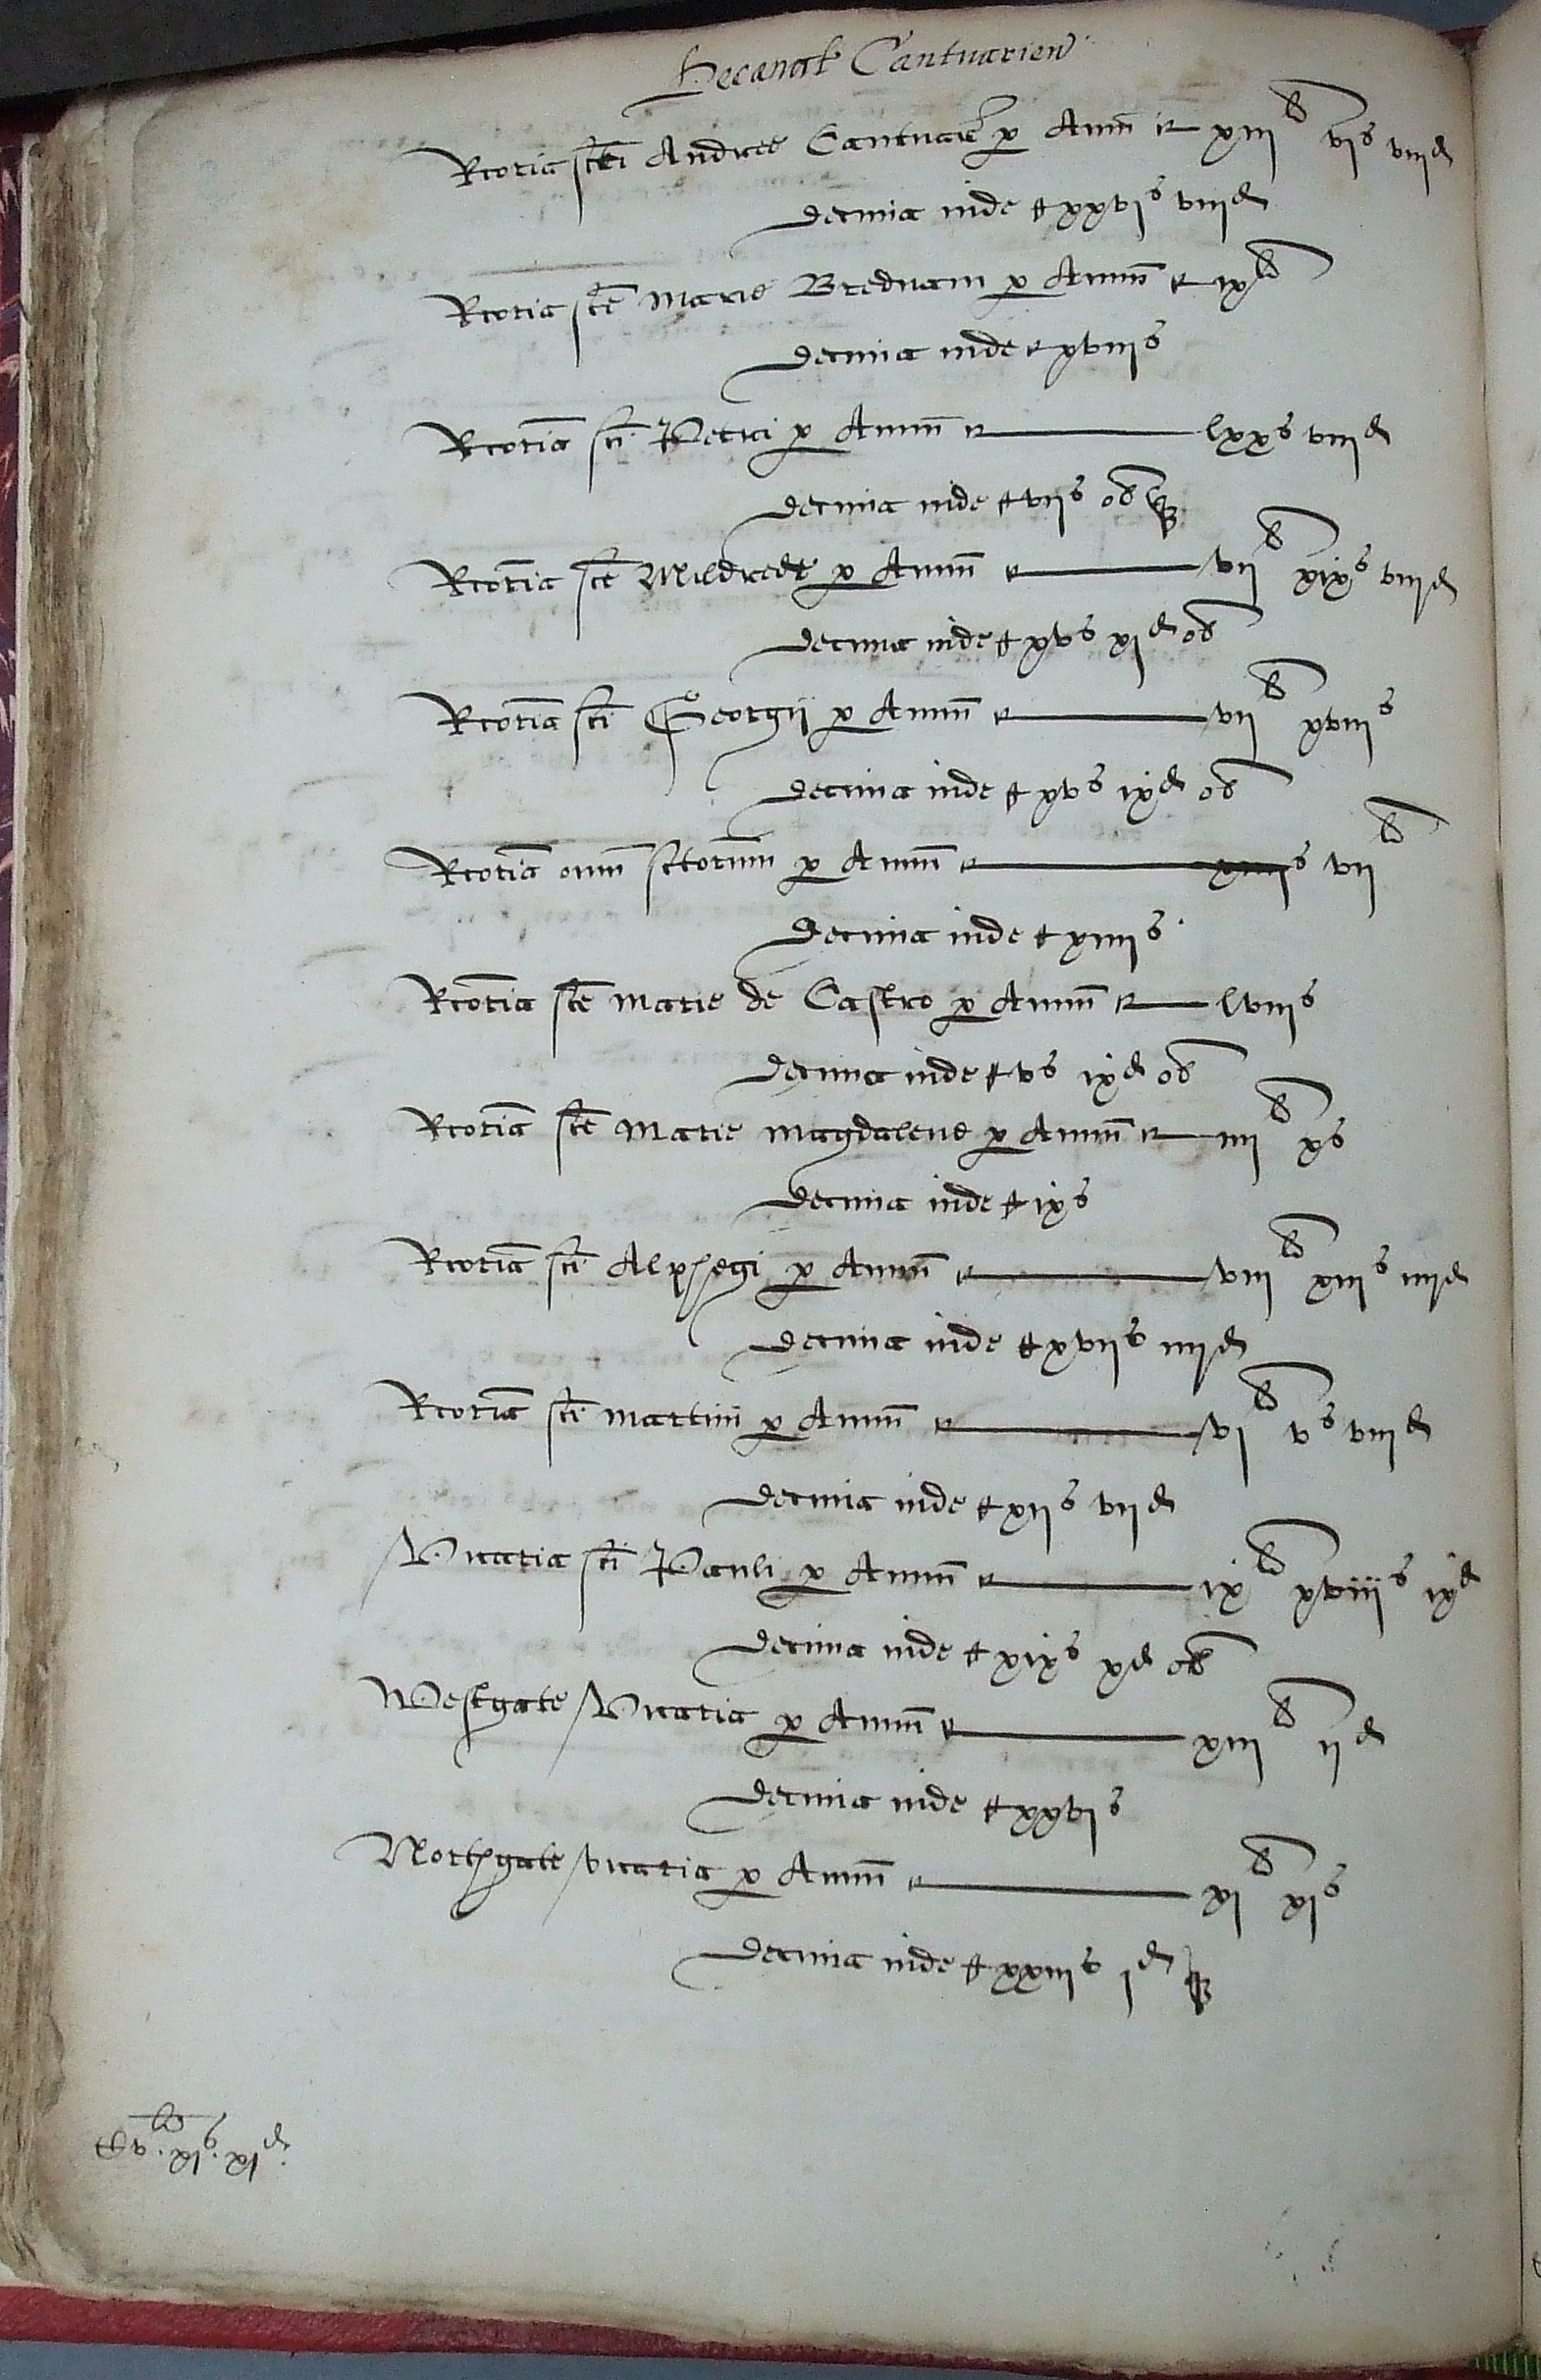 Decanat Cantuarien
Rcoria scti Andree Cantuar p Annu xiijli vjs viijd
Decima inde xxvjs viijd
Rcoria sce Marie Brednam p Annum ixli
Decima inde xviijs
Rcoria sci Petri p Annum lxxs viijd
Decima inde vijs ob
Rcoria sce Mildrede p Annum vijli xixs viijd
Decima inde xvs xjd ob
Rcoria sci Georgij p Annum vijli xviijs
Decima inde xvs ixd ob
Rcoria omn sctorum p Annum vijli
Decima inde xiiijs
Rcoria sce Marie de Castro p Annum lviijs
Decima inde vs ixd ob
Rcoria sce Marie Magdalene p Annum iiijli xs
Decima inde ixs
Rcoria sci Alphegi p Annum viijli xiijs iiijd
Decima inde xvijs iiijd
Rcoria sci Martini p Annum vjli vs viijd
Decima inde xijs vijd
Vicaria sci Pauli p Annum ixli xviijs ixd
Decima inde xixs xd ob
Westgate Vicaria p Annum xiijli ijd
Decima inde xxvjs
Northgate vicaria p Annum xjli xjs
Decima inde xxiijs jd